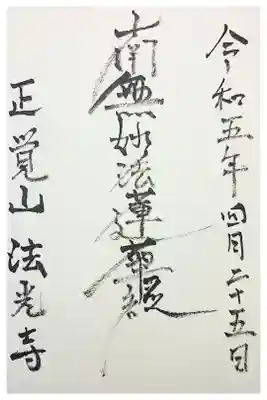 令和五年四月二十五日
南無妙法蓮華経
正覚山法光寺